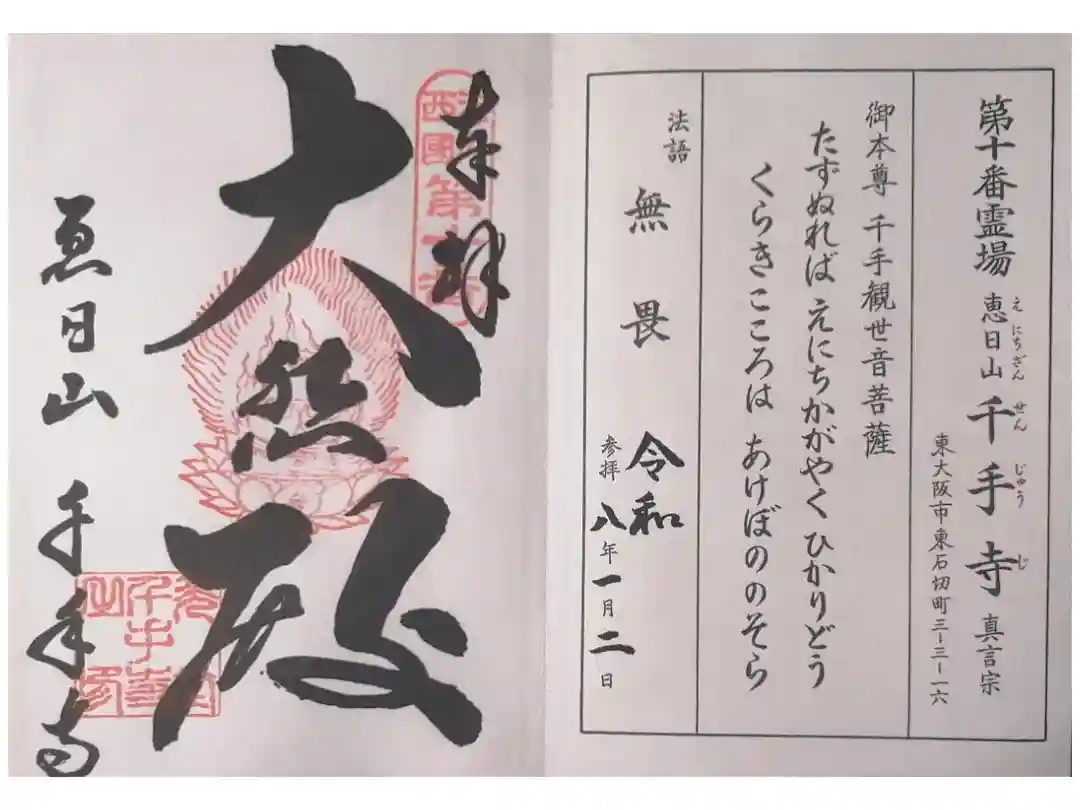 第十番霊場 恵日山 千手寺 真言宗
えにちざん せんじゅうじ
東大阪市東石切町三-三-一六
御本尊 千手観世音菩薩
たずぬれば えにちかがやく ひかりどう
くらきこころは あけぼののそら
法語 無畏
令和
参拝 八年一月二日
奉拝
西國第十番
大悲殿
恵日山 千手寺